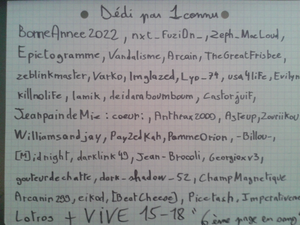 Dédi par 1connu
BonneAnnee2022, nxt_FuziOn_, Zeph_MacLoud,
Epictogramme, Vandalisme, Arcain, TheGreatFrisbee,
zeblinkmaster, Varko, Imglazed, Lyo_74, usa4life, Evilyn
killnolife, lamik, deidaraboumboum, Castorjuif,
JeanpaindeMie :coeur:, Anthrax2000, Asteup,
Williamsandjay, PayZedKah, PommeOrion, -Billou-,
[M]idnight, darklink49, Jean-Brocoli, Georgiaxv3,
gouteurdechatte, dark-shadow_52, ChampMagnetique
Arcanin299, eikod, [BeatCheese], Picetech, Imperativeme
Latios + VIVE 15-18 "6ème page en sang"